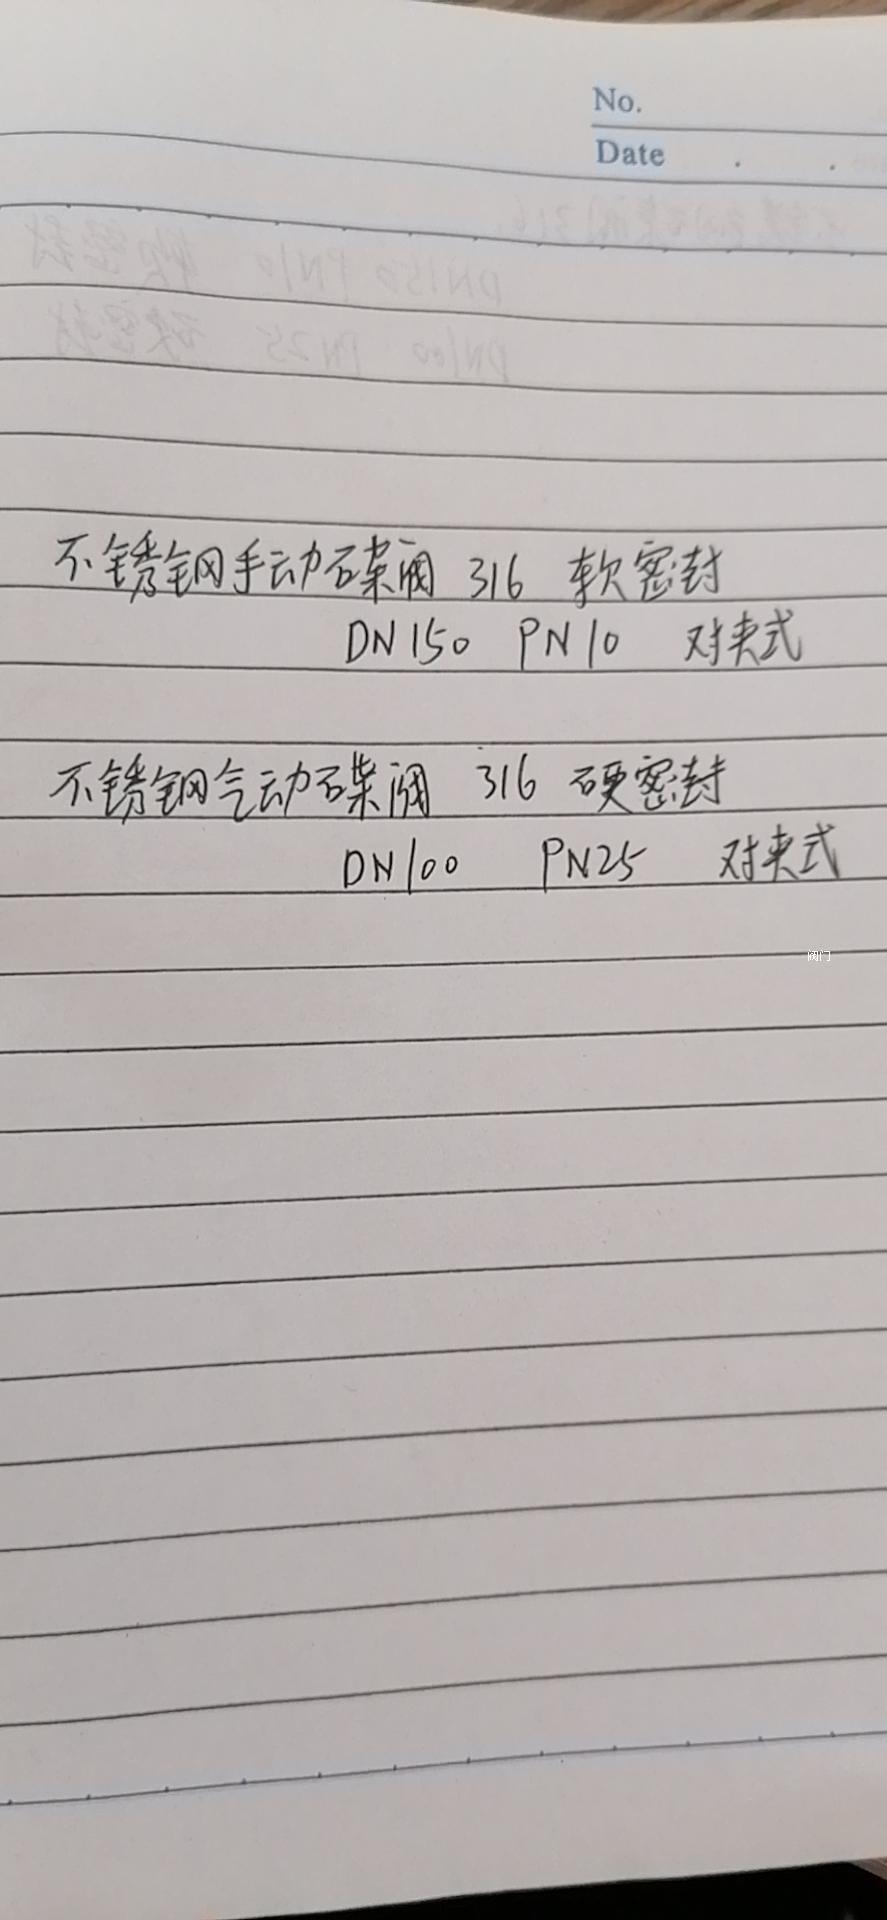 No.
Date . .
不锈钢手动碟阀 316 软密封
DN150 PN10 对夹式
不锈钢气动碟阀 316 硬密封
DN100 PN25 对夹式
阀门